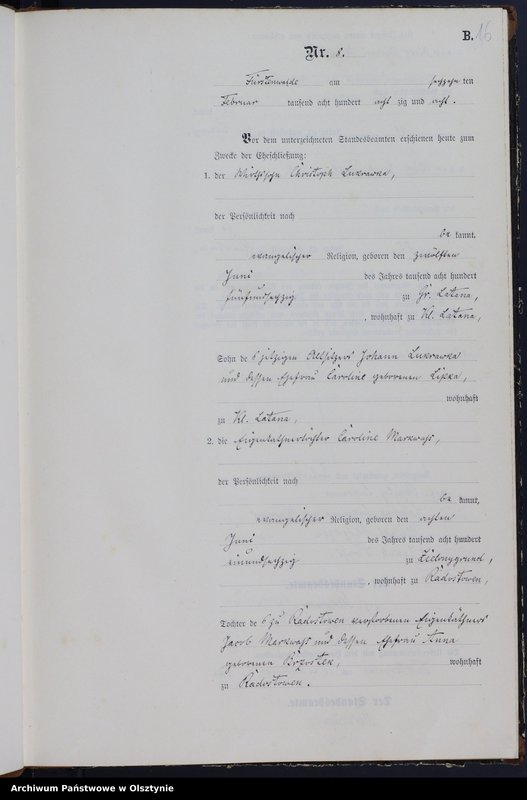 B. 16
Nr. 8.
Fürstenwalde am sechzehn ten
Februar tausend acht hundert acht zig und acht.
Vor dem unterzeichneten Standesbeamten erschienen heute zum
Zwecke der Eheschließung:
1. der Wirthssohn Christoph Lukrawka,
der Persönlichkeit nach
be kannt,
evangelischer Religion, geboren den zwölften
Juni des Jahres tausend acht hundert
fünfundsechzig zu Gr. Latana,
, wohnhaft zu Kl. Latana,
Sohn des jetzigen Altsitzers Johann Lukrawka
und dessen Ehefrau Caroline geborenen Lipka,
wohnhaft
zu Kl. Latana,
2. die Eigenkäthnertochter Caroline Markwass,
der Persönlichkeit nach
be kannt,
evangelischer Religion, geboren den achten
Juni des Jahres tausend acht hundert
einundsechzig zu Zielonygrund,
, wohnhaft zu Radostowen,
Tochter des zu Radostowen verstorbenen Eigenkäthners
Jacob Markwass und dessen Ehefrau Anna
geborenen Brzostek, wohnhaft
zu Radostowen.
Archiwum Państwowe w Olsztynie